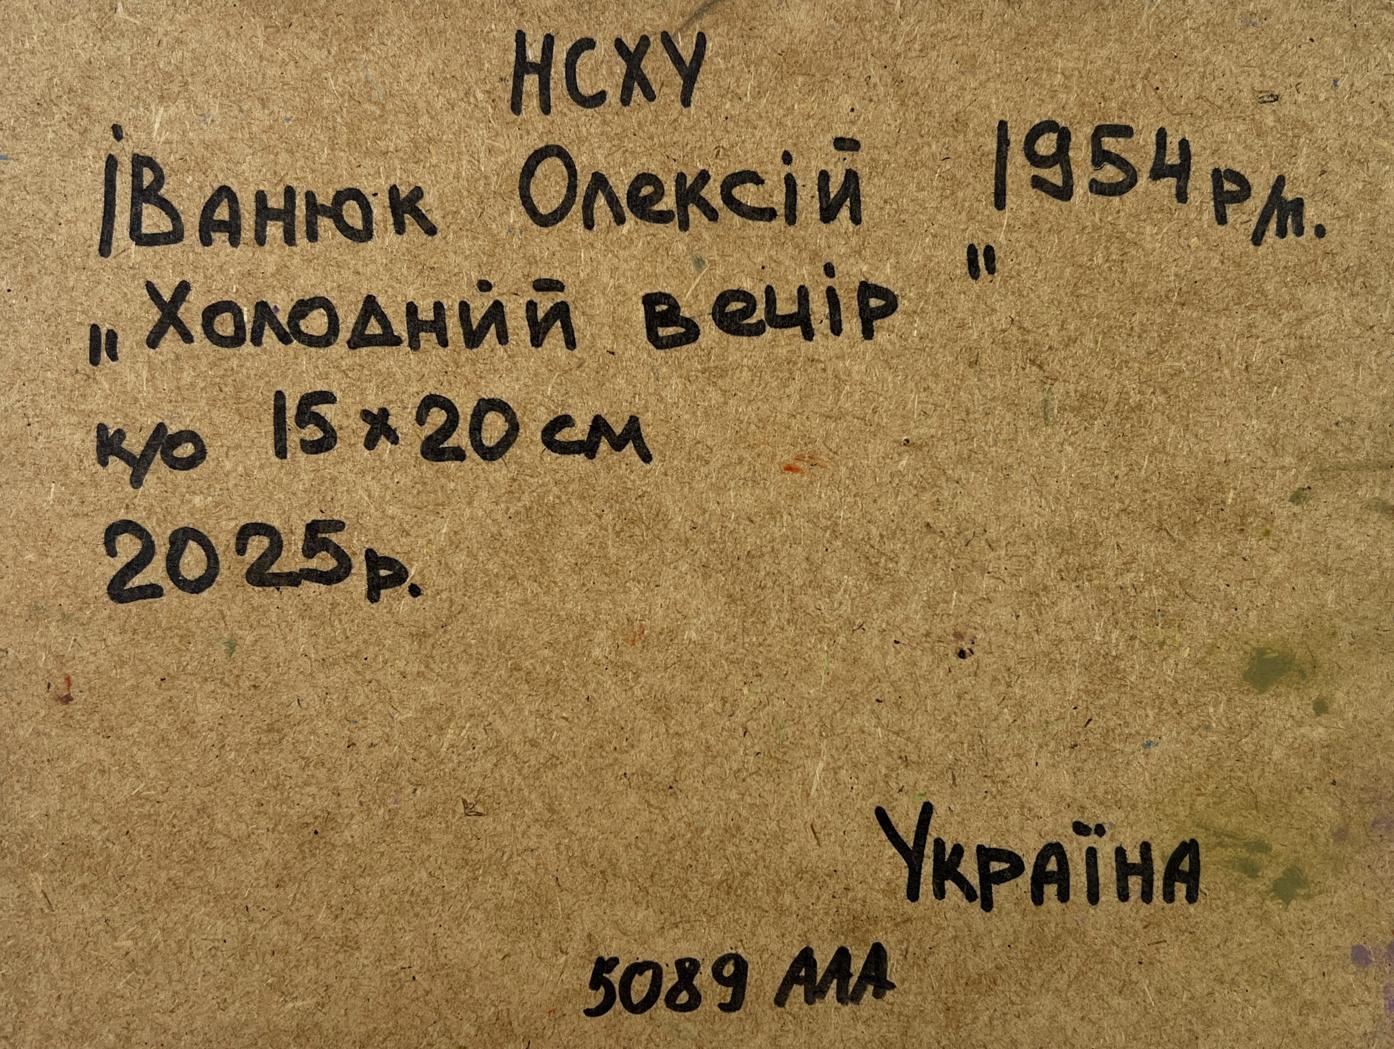 НСХУ
Іванюк Олексій 1954 р/н.
„Холодний вечір"
к/о 15×20 см
2025р.
Україна
5089 ААА